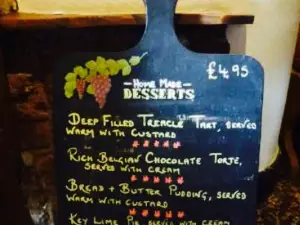 HOME MADE
DESSERTS
£4.95
DEEP FILLED TREACLE TART, SERVED
WARM WITH CUSTARD
RICH BELGIAN CHOCOLATE TORTE,
SERVED WITH CREAM
BREAD + BUTTER PUDDING, SERVED
WARM WITH CUSTARD
KEY LIME PIE SERVED WITH CREAM